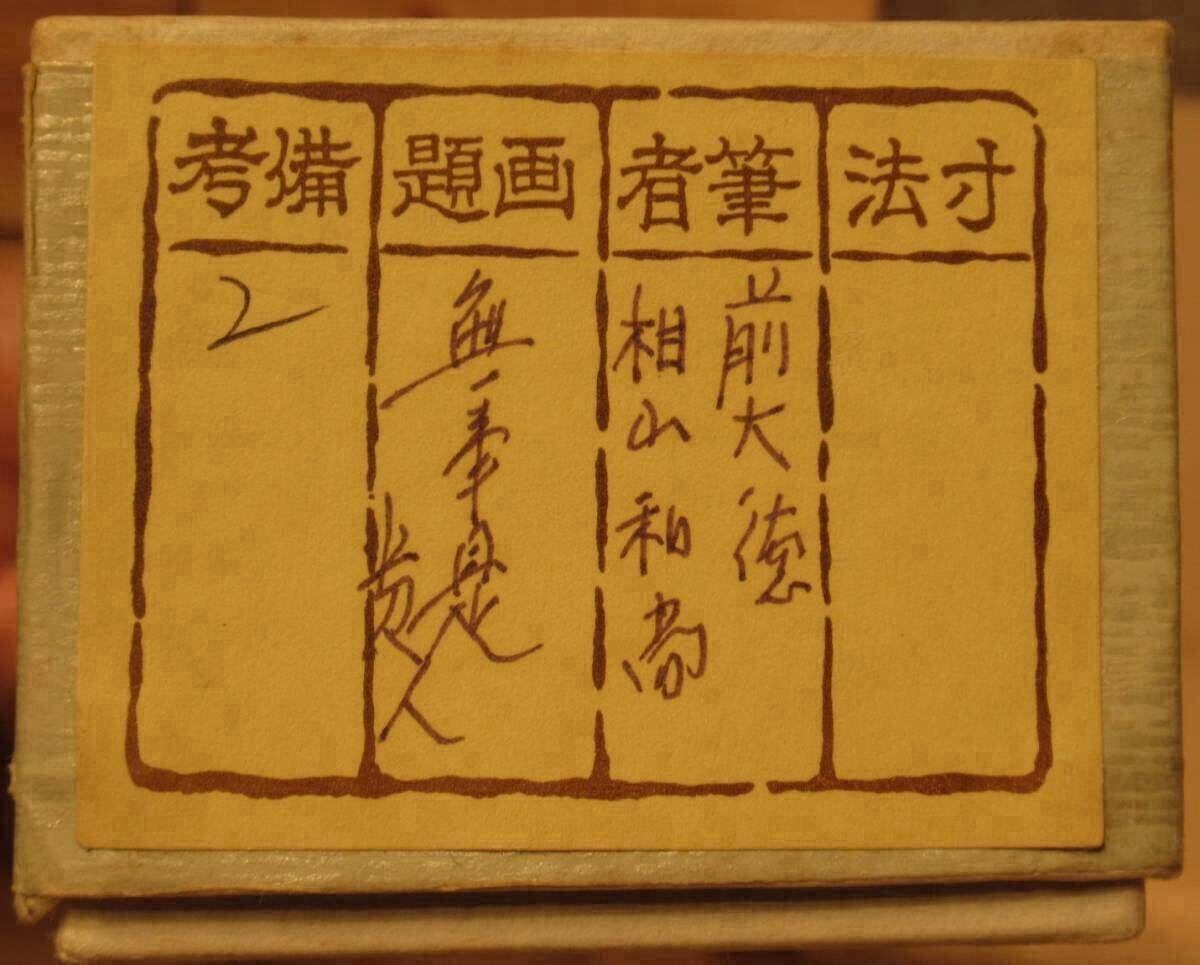 寸法
筆者
前大徳
相山和尚
画題
無事是
貴人
備考
2